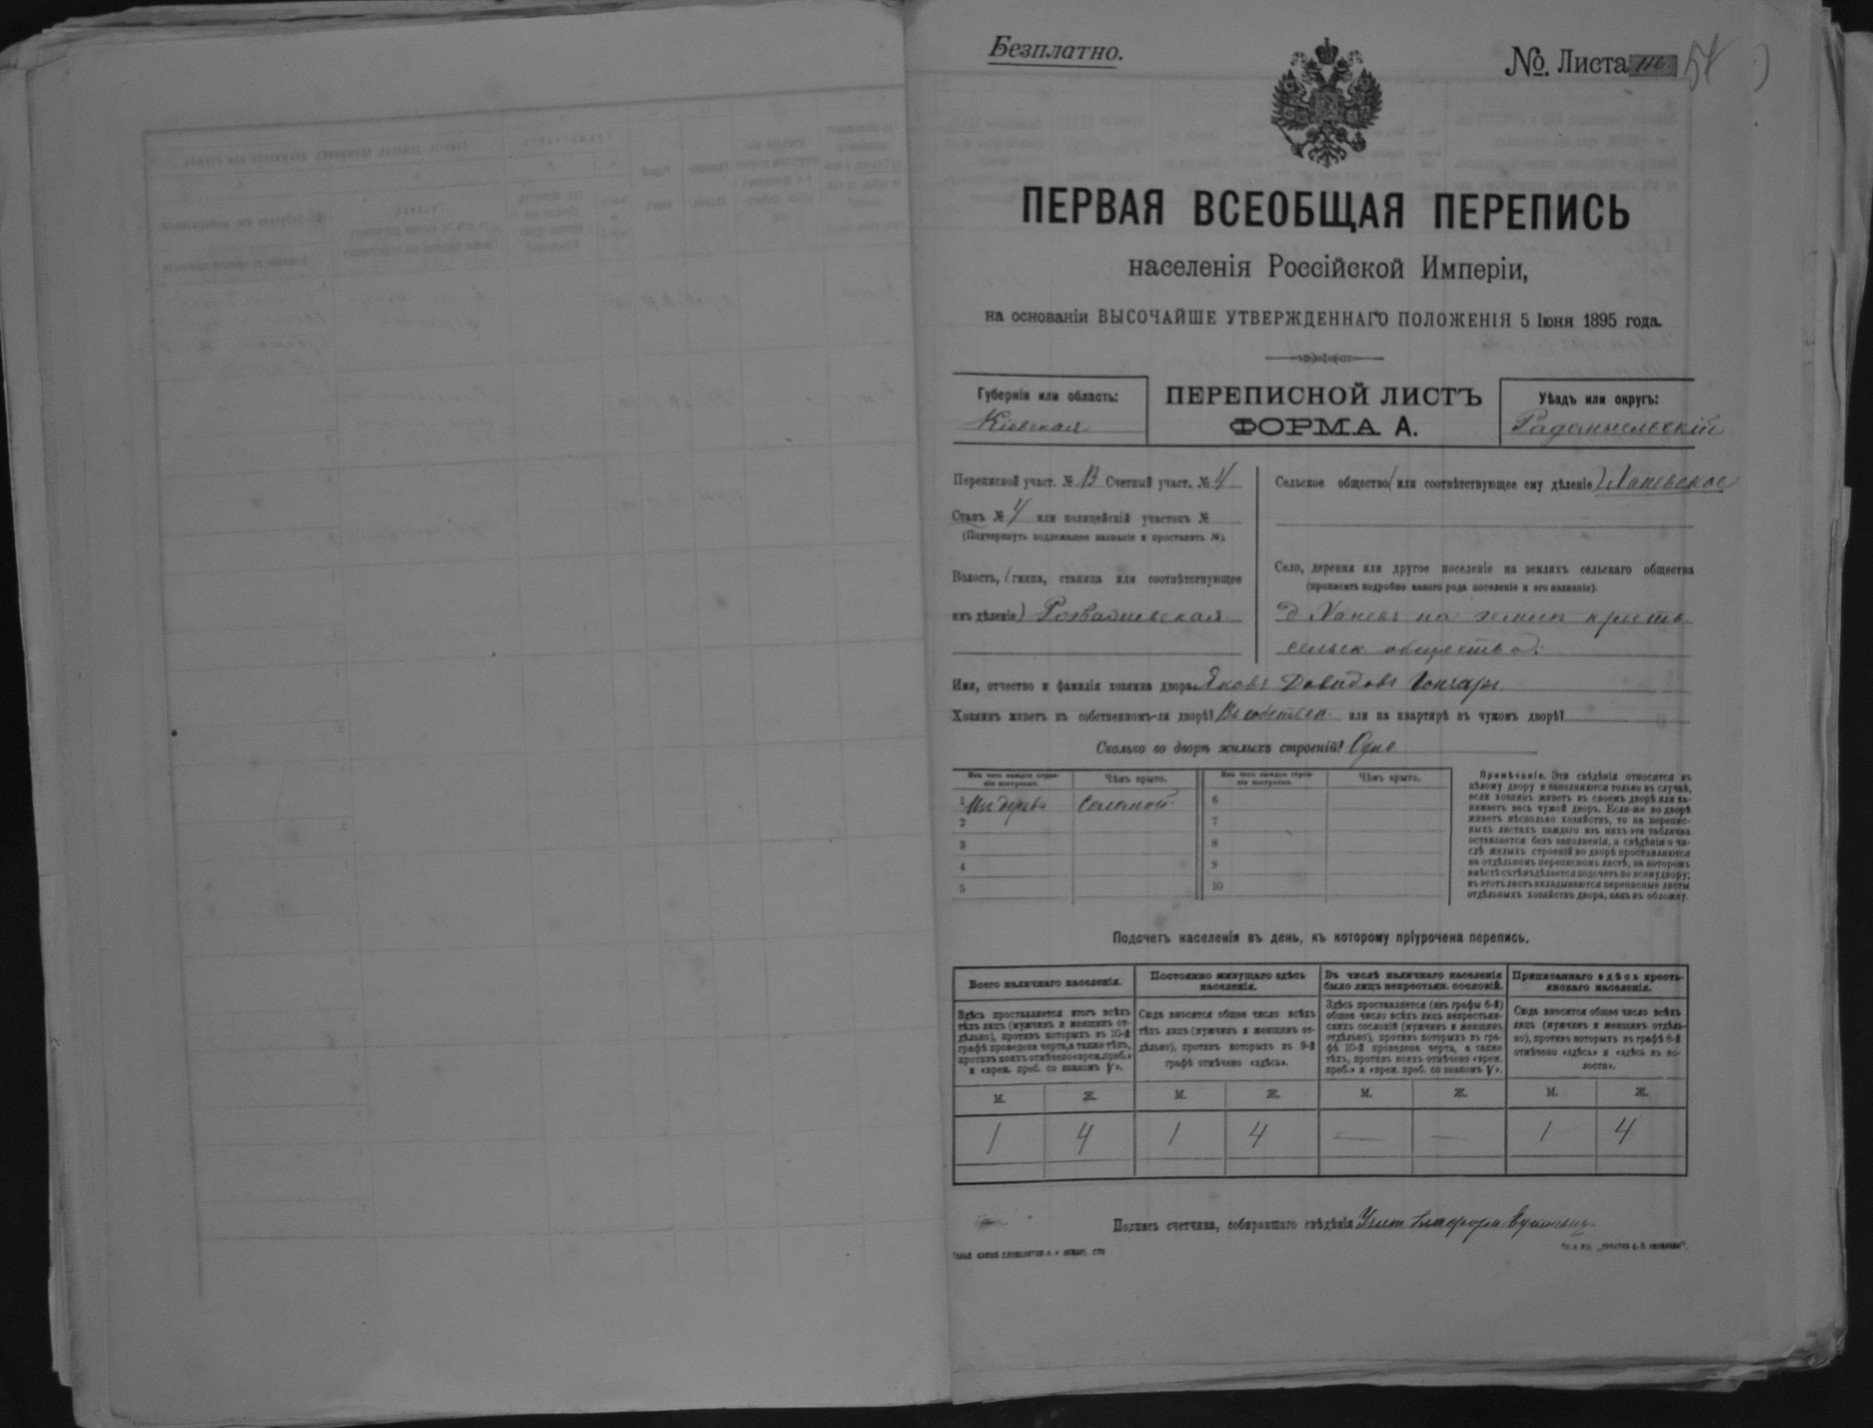 Безплатно.
№. Листа 116 54
ПЕРВАЯ ВСЕОБЩАЯ ПЕРЕПИСЬ
населенія Россійской Имперіи,
на основаніи ВЫСОЧАЙШЕ УТВЕРЖДЕННАГО ПОЛОЖЕНІЯ 5 Іюня 1895 года.
Губернія или область:
Кіевская
ПЕРЕПИСНОЙ ЛИСТЪ
ФОРМА А.
Уѣздъ или округъ:
Радомысльскій
Переписной участ. № В Счетный участ. № 4
Станъ № 4 или полицейскій участокъ №
(Подчеркнуть подлежащее названіе и проставить №).
Волость, (гмина, станица или соотвѣтствующее
имъ дѣленіе)
Сельское общество (или соотвѣтствующее ему дѣленіе) Ханевское
Село, деревня или другое поселеніе на земляхъ сельскаго общества
(прописать подробно какого рода поселеніе и его названіе).
д Ханевъ на земли крестья
сельск общества.
Имя, отчество и фамилія хозяина двора Яковъ Давидовъ Гончаръ
Хозяинъ живетъ въ собственномъ-ли дворѣ? В собствен. или на квартирѣ въ чужомъ дворѣ?
Сколько во дворѣ жилыхъ строеній? Одно
Изъ чего каждое строе-
ніе построено.
Чѣмъ крыто.
Изъ чего каждое строе-
ніе построено.
Чѣмъ крыто.
1 Из дерева Соломой 6
2 7
3 8
4 9
5 10
Примѣчаніе. Эти свѣдѣнія относятся къ
цѣлому двору и заполняются только въ случаѣ,
если хозяинъ живетъ въ своемъ дворѣ или за-
нимаетъ весь чужой дворъ. Если-же во дворѣ
живетъ нѣсколько хозяйствъ, то на перепис-
ныхъ листахъ каждаго изъ нихъ эта табличка
оставляется безъ заполненія, а свѣдѣнія о чи-
слѣ жилыхъ строеній во дворѣ проставляются
на отдѣльномъ переписномъ листѣ, на которомъ
вмѣстѣ съ тѣмъ дѣлается подсчетъ по всему двору;
въ этотъ листъ вкладываются переписные листы
отдѣльныхъ хозяйствъ двора, какъ въ обложку.
Подсчетъ населенія въ день, къ которому пріурочена перепись.
Всего наличнаго населенія.
Здѣсь проставляется итогъ всѣхъ
тѣхъ лицъ (мужчинъ и женщинъ от-
дѣльно), противъ которыхъ въ 10-й
графѣ проведена черта, а также тѣхъ,
противъ коихъ отмѣчено «врем. преб.»
и «врем. преб. со знакомъ V».
Постоянно живущаго здѣсь
населенія.
Сюда вносится общее число всѣхъ
тѣхъ лицъ (мужчинъ и женщинъ от-
дѣльно), противъ которыхъ въ 9-й
графѣ отмѣчено «здѣсь».
Въ числѣ наличнаго населенія
было лицъ некрестьян. сословій.
Здѣсь проставляется (изъ графы 6-й)
общее число всѣхъ лицъ некрестьян-
скихъ сословій (мужчинъ и женщинъ
отдѣльно), противъ которыхъ въ гра-
фѣ 10-й проведена черта, а также
тѣхъ, противъ коихъ отмѣчено «врем.
преб.» и «врем. преб. со знакомъ V».
Приписаннаго здѣсь кресть-
янскаго населенія.
Сюда вносится общее число всѣхъ
лицъ (мужчинъ и женщинъ отдѣль-
но), противъ которыхъ въ графѣ 8-й
отмѣчено «здѣсь» и «здѣсь въ во-
лости».
М. Ж. М. Ж. М. Ж. М. Ж.
1 4 1 4 — — 1 4
Подпись счетчика, собиравшаго свѣдѣнія